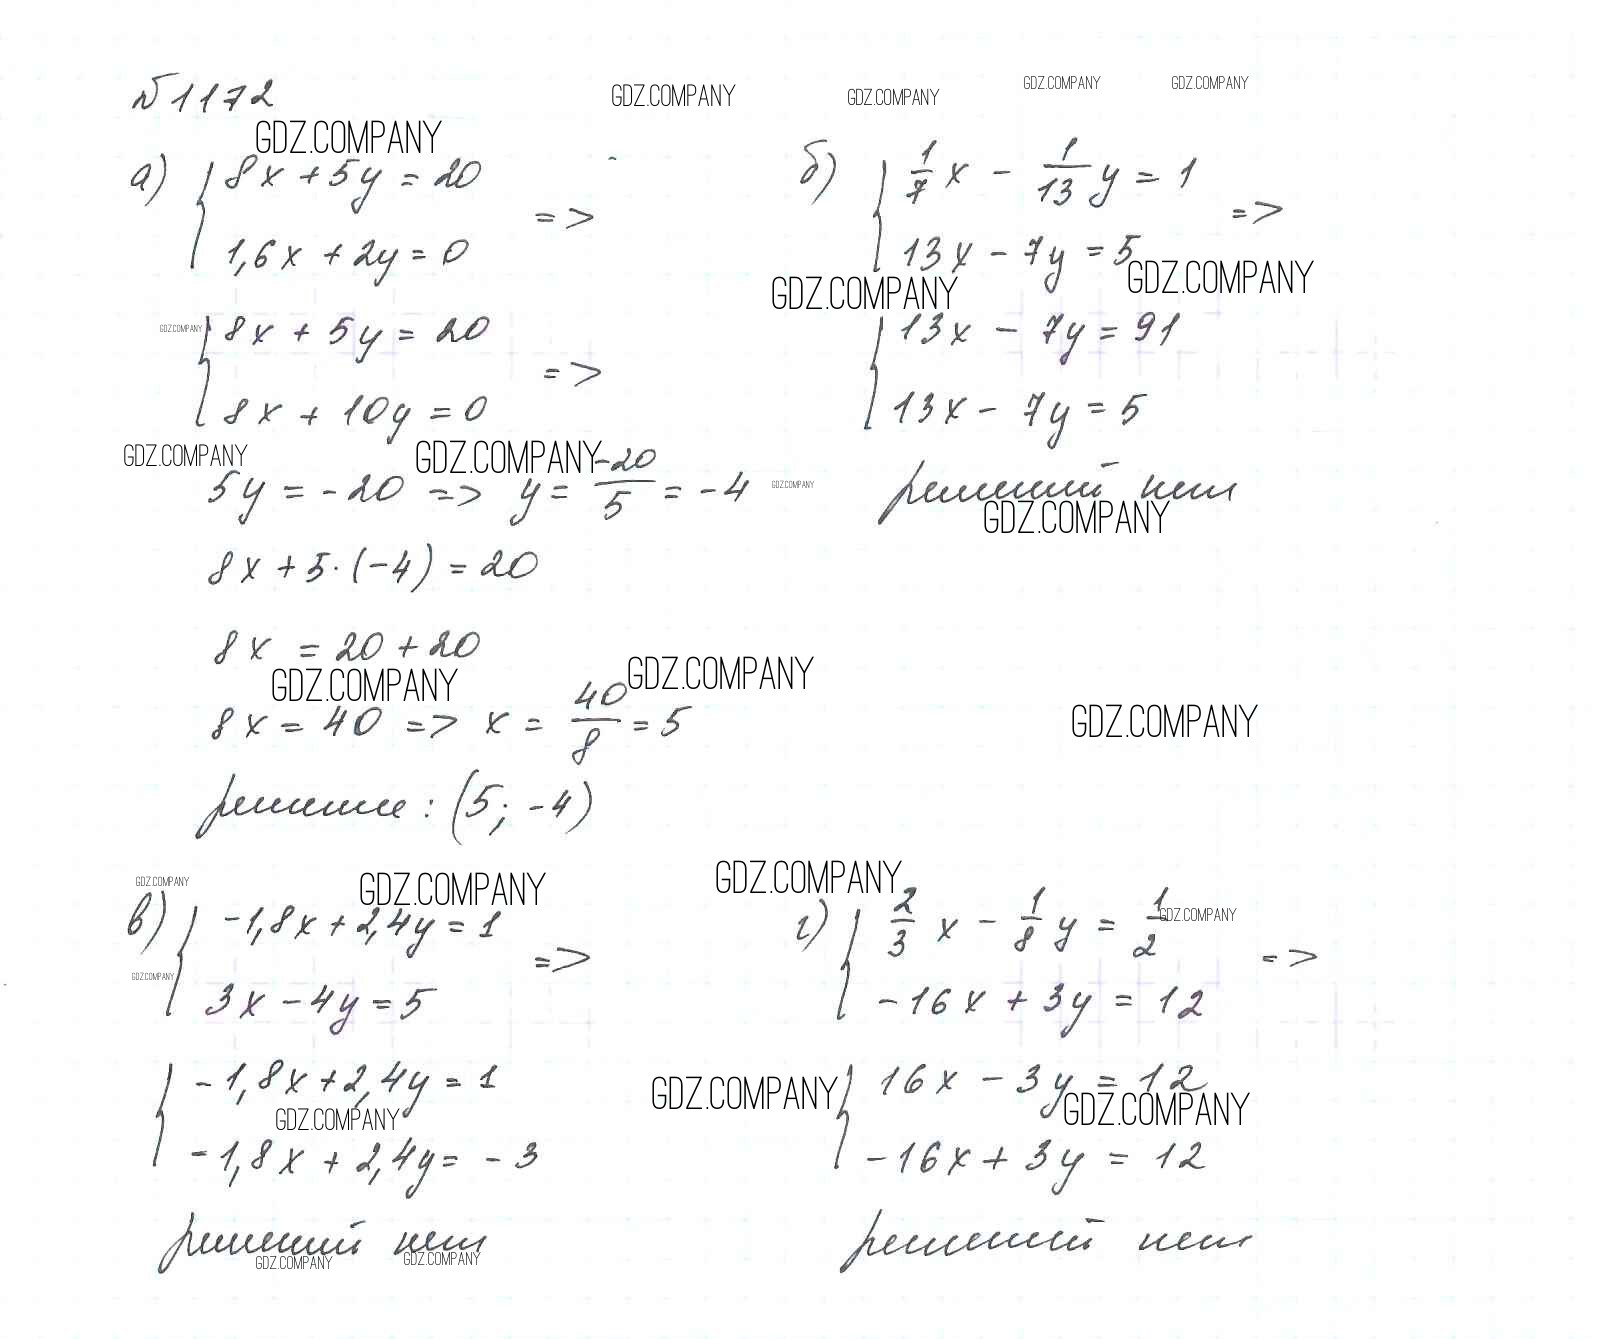 № 1172
GDZ.COMPANY GDZ.COMPANY GDZ.COMPANY GDZ.COMPANY
GDZ.COMPANY
а) { 8x + 5y = 20
1,6x + 2y = 0 =>
GDZ.COMPANY { 8x + 5y = 20
8x + 10y = 0 =>
GDZ.COMPANY GDZ.COMPANY
5y = -20 => y = -20/5 = -4 GDZ.COMPANY
8x + 5·(-4) = 20
8x = 20 + 20
GDZ.COMPANY GDZ.COMPANY
8x = 40 => x = 40/8 = 5
решение : (5; -4)
б) { 1/7 x - 1/13 y = 1
13x - 7y = 5 =>
GDZ.COMPANY GDZ.COMPANY
{ 13x - 7y = 91
13x - 7y = 5
решений нет
GDZ.COMPANY
GDZ.COMPANY
GDZ.COMPANY GDZ.COMPANY
в) { -1,8x + 2,4y = 1
GDZ.COMPANY 3x - 4y = 5 =>
{ -1,8x + 2,4y = 1
GDZ.COMPANY
-1,8x + 2,4y = -3
решений нет
GDZ.COMPANY GDZ.COMPANY
GDZ.COMPANY
г) { 2/3 x - 1/8 y = 1/2 GDZ.COMPANY
-16x + 3y = 12 =>
GDZ.COMPANY { 16x - 3y = 12
GDZ.COMPANY
-16x + 3y = 12
решений нет